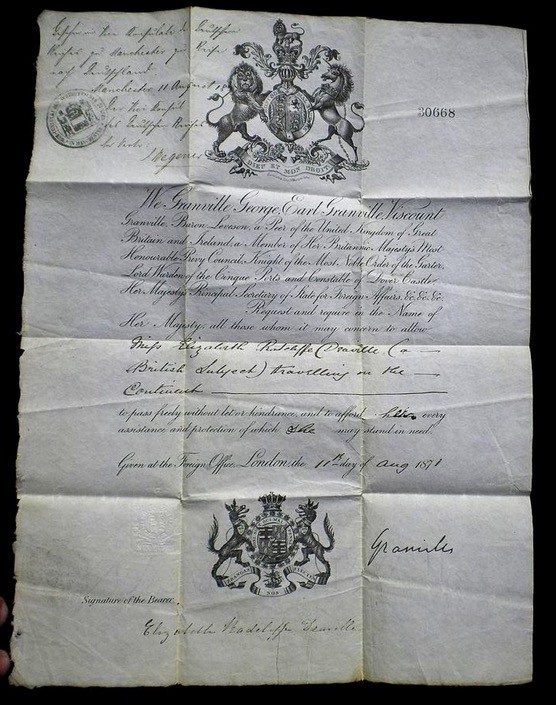 Gesehen im Kaiserlich Deutschen
nach Deutschland
Manchester 11 August
30668
DIEU ET MON DROIT
We Granville George, Earl Granville, Viscount
Granville, Baron Leveson, a Peer of the United Kingdom of Great
Britain and Ireland, a Member of Her Britannic Majesty's Most
Honourable Privy Council, Knight of the Most Noble Order of the Garter,
Lord Warden of the Cinque Ports and Constable of Dover Castle,
Her Majesty's Principal Secretary of State for Foreign Affairs, &c. &c. &c.
Request and require in the Name of
Her Majesty, all those whom it may concern to allow
Miss Elizabeth Ratcliffe (a
British Subject) travelling on the
Continent
to pass freely without let or hindrance, and to afford her every
assistance and protection of which she may stand in need.
Given at the Foreign Office, London, the 11th day of Aug 1871
Granville
Signature of the Bearer.
Elizabeth Radcliffe